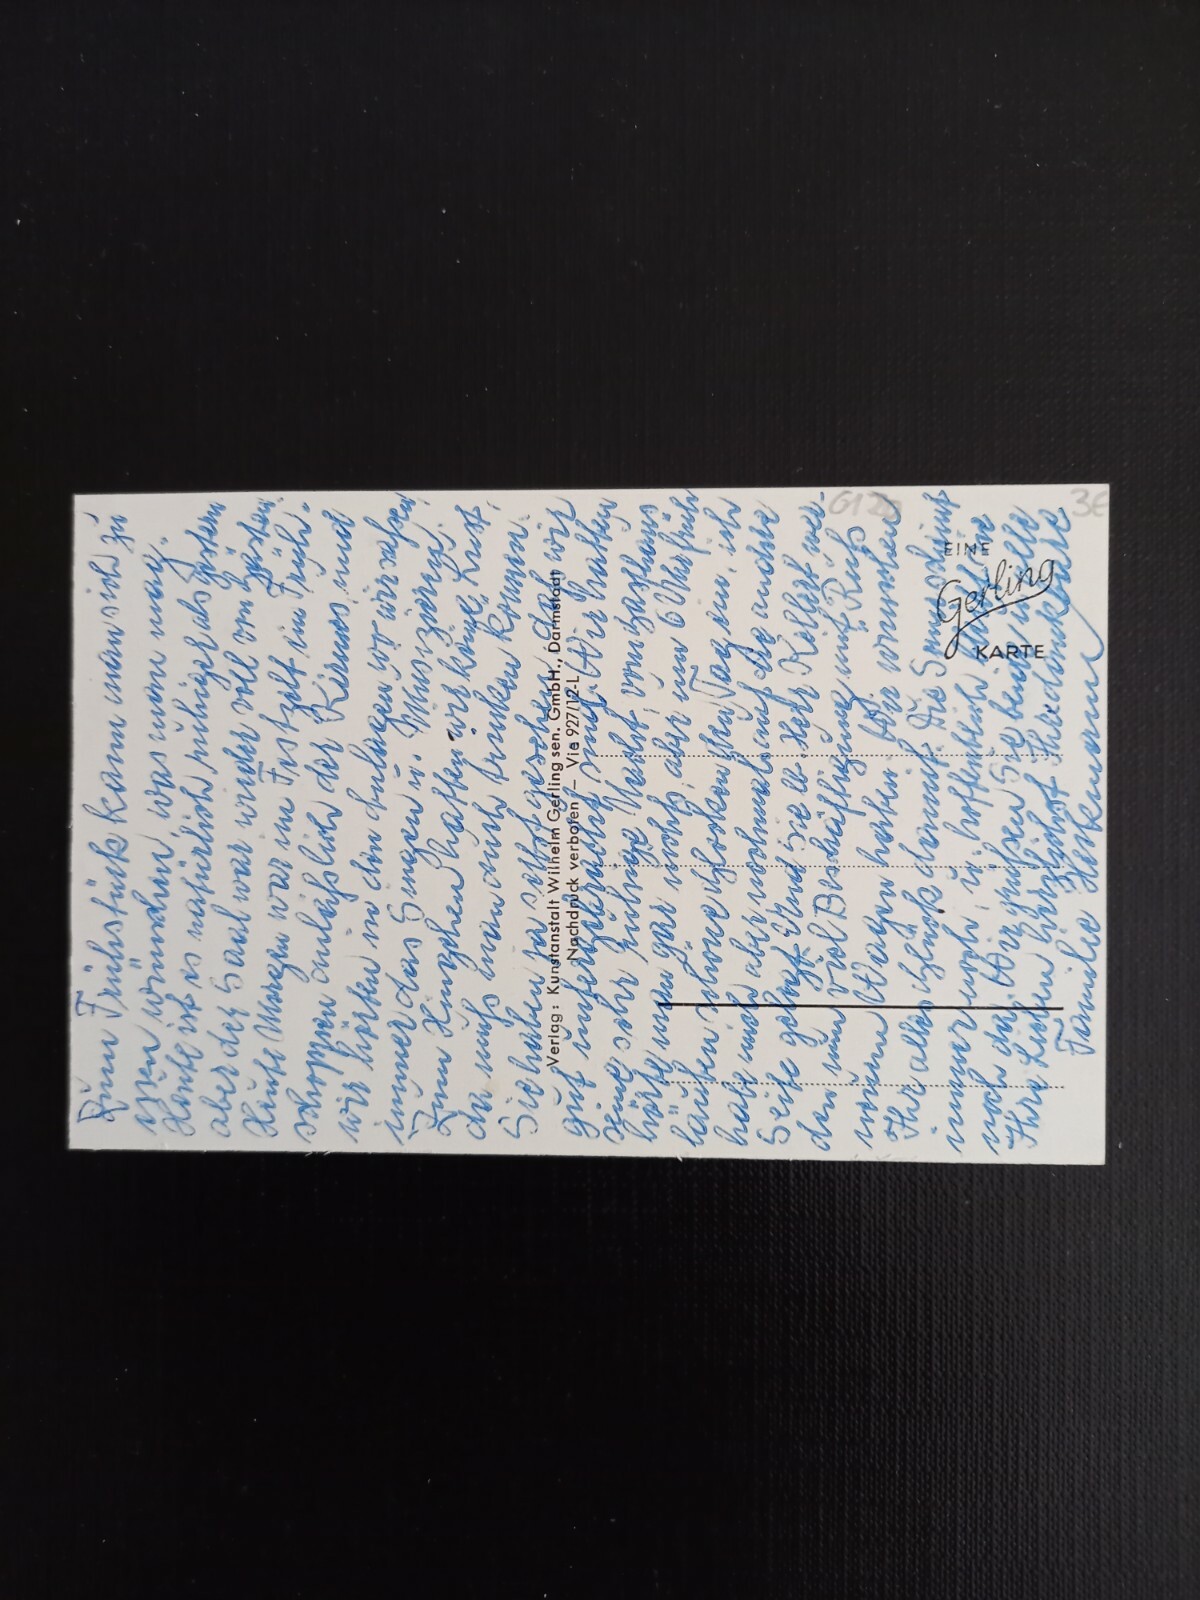 Zum Frühstück kann man sich zu
essen wünschen, was man mag.
Heute ist es natürlich ruhiger als gestern
aber der Saal war wieder voll von Gästen.
Heute Morgen war im Festzelt ein Früh-
schoppen anläßlich der Kirmes, und
wir hörten in den Anlagen wo wir saßen,
immer das Singen u. Musizieren.
Zum Hingehen hatten wir keine Lust,
da muß man auch trinken können.
Sie haben ja selbst gesehen, daß wir
gut untergebracht sind. Wir hatten
eine sehr ruhige Nacht, vom Gasthaus
hörte man gar nichts, aber um 6 Uhr früh
läuten schöne Glocken den Tag an, ich
habe mich aber nochmal auf die andere
Seite gelegt. Und Sie lb. Herr Kollege wer-
den nun viel Beschäftigung mit Ruß
Wagen haben. Wir wünschen
Ihr alles Glück damit. Die Sonne scheint
immer noch, u. hoffentlich
noch an. Wir grüßen Sie beide u. alle
Ihre Lieben herzlichst
Familie
Verlag: Kunstanstalt Wilhelm Gerling sen. GmbH., Darmstadt
Nachdruck verboten — Vie 927/12-L
EINE
Gerling
KARTE
G120
3€